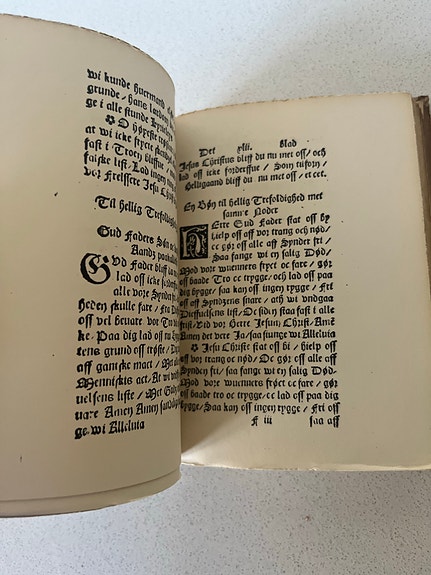 wi kunde huermand
grunde / hans
ge i alle stunde
O høyeste
at wi icke fryete
fast i Troen bliffue /
falske list / Lad ingen
vor Frelssere Jesu
Til hellig Trefoldighed
Gud Faders Søn
Aandz
GVd Fader bliff
lad off icke
alle vore Synder
heden skulle fare / Fri
off vel beuare vor Tro
ke. Paa dig lad off
tens grund off trøste /
aff ganske mact / Met alle
Menniskis act / At wi
uelsens liste / Met Gudz
uare Amen Amen
ge / wi Alleluia
Det xlij. blad
Jesus Christus bliff du nu met off / oc
lad off icke forderffue / Som tilforn /
Helligaand bliff du nu met off / et cet.
En Bøn til hellig Trefoldighed met
samme Noder
HErre Gud Fader stat off by
hielp off aff vor trang oc nød /
oc gør off alle aff Synder fri /
Saa fange wi en salig Død /
Mod vore wuenners fryct oc fare / gør
off baade Tro oc trygge / oc lad off paa
dig bygge / saa kan off ingen rygge / Fri
off aff Syndzens snare / ath wi vndgaa
Dieffuelsens list / Oc siden staa fast i alle
frist / Ved vor Herre Jesum Christ / Amẽ
Amen det vere Ja / saa siunge wi Alleluia
O Jesu Christe stat off bi / hielp off
aff vor trang oc nød / Oc gør off alle aff
Synden fri / saa fange wi en salig Død.
Mod vore wuenners frøct oc fare / gør
off baade tro oc trygge / oc lad off paa dig
bygge / Saa kan off ingen rygge / Fri off
F iij saa aff